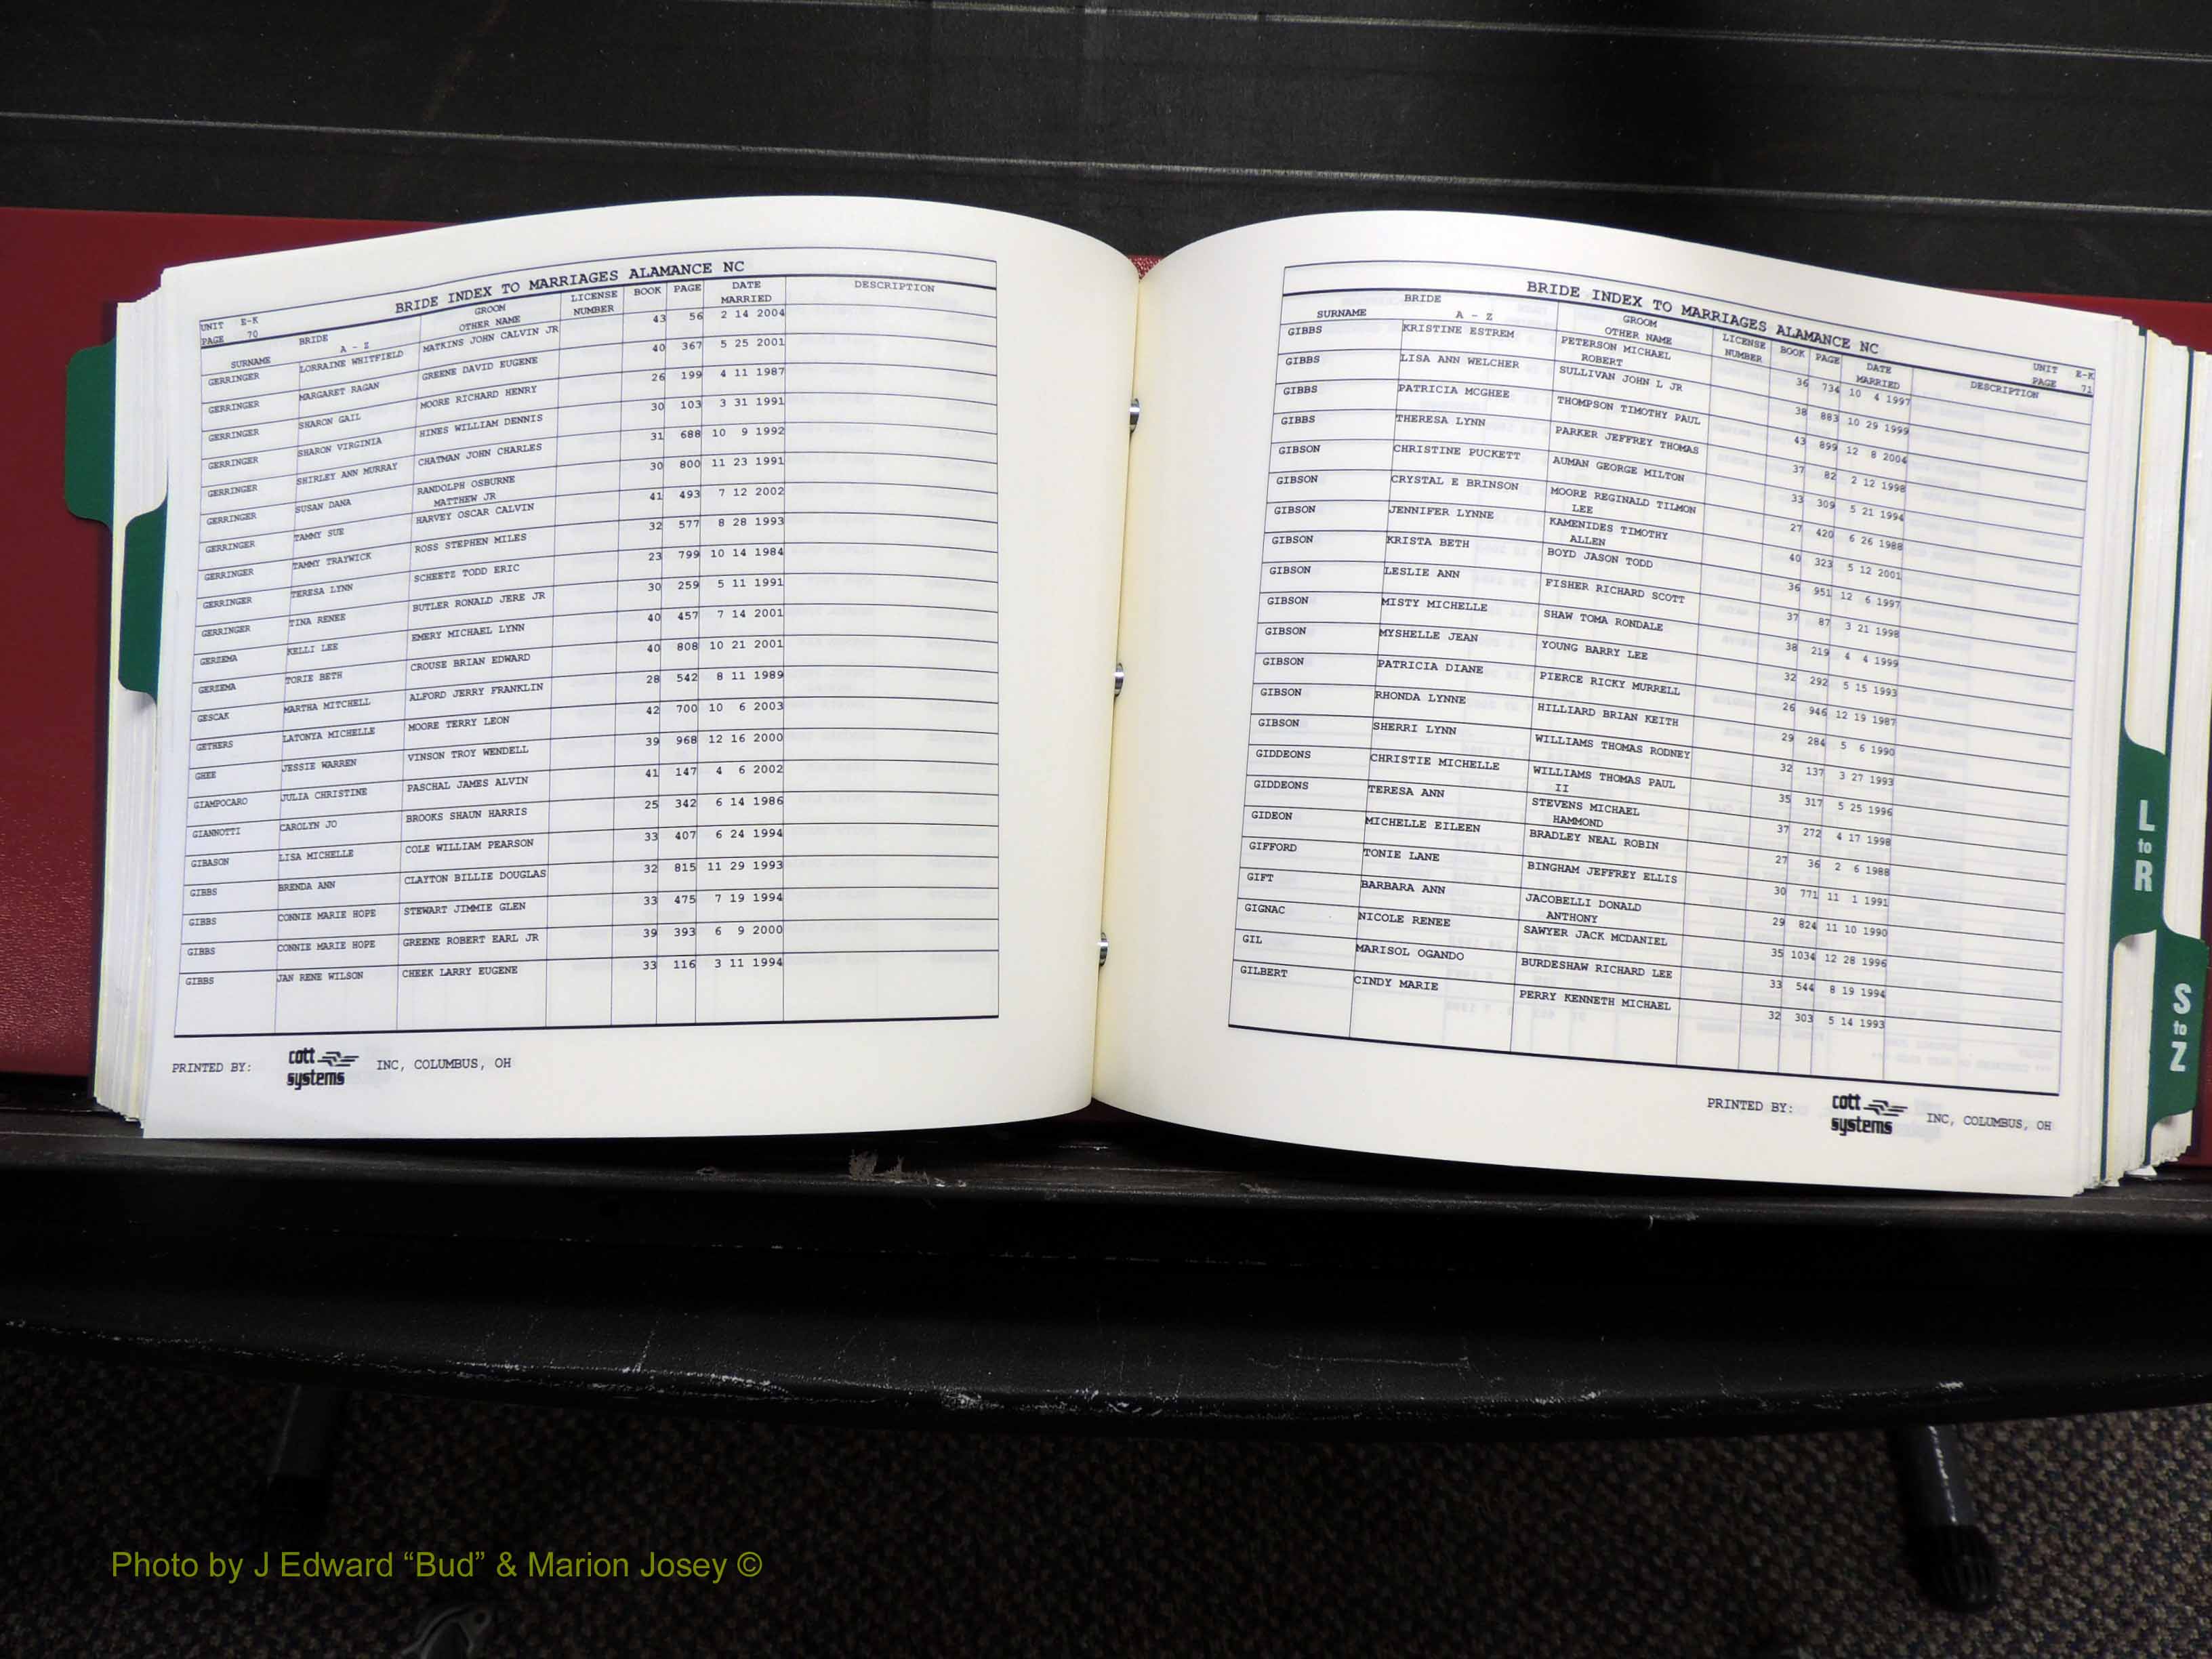 BRIDE INDEX TO MARRIAGES ALAMANCE NC
UNIT E-K
PAGE 70
BRIDE GROOM LICENSE BOOK PAGE DATE DESCRIPTION
SURNAME A - Z OTHER NAME NUMBER MARRIED
GERRINGER LORRAINE WHITFIELD MATKINS JOHN CALVIN JR 43 56 2 14 2004
GERRINGER MARGARET RAGAN GREENE DAVID EUGENE 40 367 5 25 2001
GERRINGER SHARON GAIL MOORE RICHARD HENRY 26 199 4 11 1987
GERRINGER SHARON VIRGINIA HINES WILLIAM DENNIS 30 103 3 31 1991
GERRINGER SHIRLEY ANN MURRAY CHATMAN JOHN CHARLES 31 688 10 9 1992
GERRINGER SUSAN DANA RANDOLPH OSBURNE 30 800 11 23 1991
MATTHEW JR
GERRINGER TAMMY SUE HARVEY OSCAR CALVIN 41 493 7 12 2002
GERRINGER TAMMY TRAYWICK ROSS STEPHEN MILES 32 577 8 28 1993
GERRINGER TERESA LYNN SCHEETZ TODD ERIC 23 799 10 14 1984
GERRINGER TINA RENEE BUTLER RONALD JERE JR 30 259 5 11 1991
GERZEMA KELLI LEE EMERY MICHAEL LYNN 40 457 7 14 2001
GERZEMA TORIE BETH CROUSE BRIAN EDWARD 40 808 10 21 2001
GESCAK MARTHA MITCHELL ALFORD JERRY FRANKLIN 28 542 8 11 1989
GETHERS LATONYA MICHELLE MOORE TERRY LEON 42 700 10 6 2003
GHEE JESSIE WARREN VINSON TROY WENDELL 39 968 12 16 2000
GIAMPOCARO JULIA CHRISTINE PASCHAL JAMES ALVIN 41 147 4 6 2002
GIANNOTTI CAROLYN JO BROOKS SHAUN HARRIS 25 342 6 14 1986
GIBASON LISA MICHELLE COLE WILLIAM PEARSON 33 407 6 24 1994
GIBBS BRENDA ANN CLAYTON BILLIE DOUGLAS 32 815 11 29 1993
GIBBS CONNIE MARIE HOPE STEWART JIMMIE GLEN 33 475 7 19 1994
GIBBS CONNIE MARIE HOPE GREENE ROBERT EARL JR 39 393 6 9 2000
GIBBS JAN RENE WILSON CHEEK LARRY EUGENE 33 116 3 11 1994
PRINTED BY: cott systems INC, COLUMBUS, OH
BRIDE INDEX TO MARRIAGES ALAMANCE NC
UNIT E-K
PAGE 71
BRIDE GROOM LICENSE BOOK PAGE DATE DESCRIPTION
SURNAME A - Z OTHER NAME NUMBER MARRIED
GIBBS KRISTINE ESTREM PETERSON MICHAEL 36 734 10 4 1997
ROBERT
GIBBS LISA ANN WELCHER SULLIVAN JOHN L JR 38 883 10 29 1999
GIBBS PATRICIA MCGHEE THOMPSON TIMOTHY PAUL 43 899 12 8 2004
GIBBS THERESA LYNN PARKER JEFFREY THOMAS 37 82 2 12 1998
GIBSON CHRISTINE PUCKETT AUMAN GEORGE MILTON 33 309 5 21 1994
GIBSON CRYSTAL E BRINSON MOORE REGINALD TILMON 27 420 6 26 1988
LEE
GIBSON JENNIFER LYNNE KAMENIDES TIMOTHY 40 323 5 12 2001
ALLEN
GIBSON KRISTA BETH BOYD JASON TODD 36 951 12 6 1997
GIBSON LESLIE ANN FISHER RICHARD SCOTT 37 87 3 21 1998
GIBSON MISTY MICHELLE SHAW TOMA RONDALE 38 219 4 4 1999
GIBSON MYSHELLE JEAN YOUNG BARRY LEE 32 292 5 15 1993
GIBSON PATRICIA DIANE PIERCE RICKY MURRELL 26 946 12 19 1987
GIBSON RHONDA LYNNE HILLIARD BRIAN KEITH 29 284 5 6 1990
GIBSON SHERRI LYNN WILLIAMS THOMAS RODNEY 32 137 3 27 1993
GIDDEONS CHRISTIE MICHELLE WILLIAMS THOMAS PAUL 35 317 5 25 1996
II
GIDDEONS TERESA ANN STEVENS MICHAEL 37 272 4 17 1998
HAMMOND
GIDEON MICHELLE EILEEN BRADLEY NEAL ROBIN 27 36 2 6 1988
GIFFORD TONIE LANE BINGHAM JEFFREY ELLIS 30 771 11 1 1991
GIFT BARBARA ANN JACOBELLI DONALD 29 824 11 10 1990
ANTHONY
GIGNAC NICOLE RENEE SAWYER JACK MCDANIEL 35 1034 12 28 1996
GIL MARISOL OGANDO BURDESHAW RICHARD LEE 33 544 8 19 1994
GILBERT CINDY MARIE PERRY KENNETH MICHAEL 32 303 5 14 1993
PRINTED BY: cott systems INC, COLUMBUS, OH
L
to
R
S
to
Z
Photo by J Edward “Bud” & Marion Josey ©